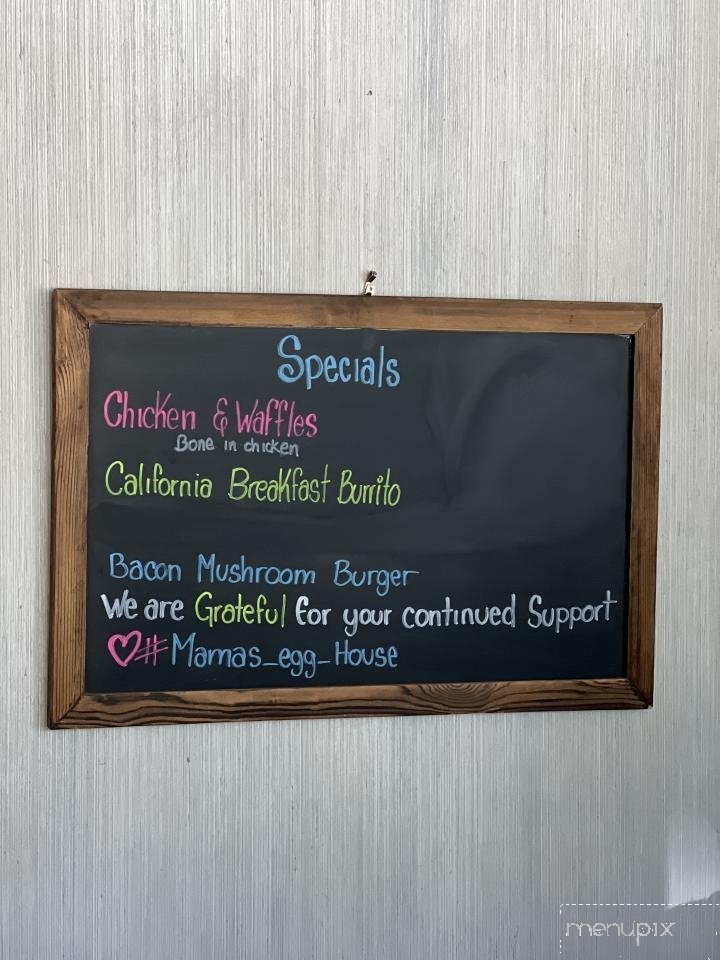 Specials
Chicken & Waffles
Bone in chicken
California Breakfast Burrito
Bacon Mushroom Burger
We are Grateful for your continued Support
♡#Mamas_egg_House
menupix